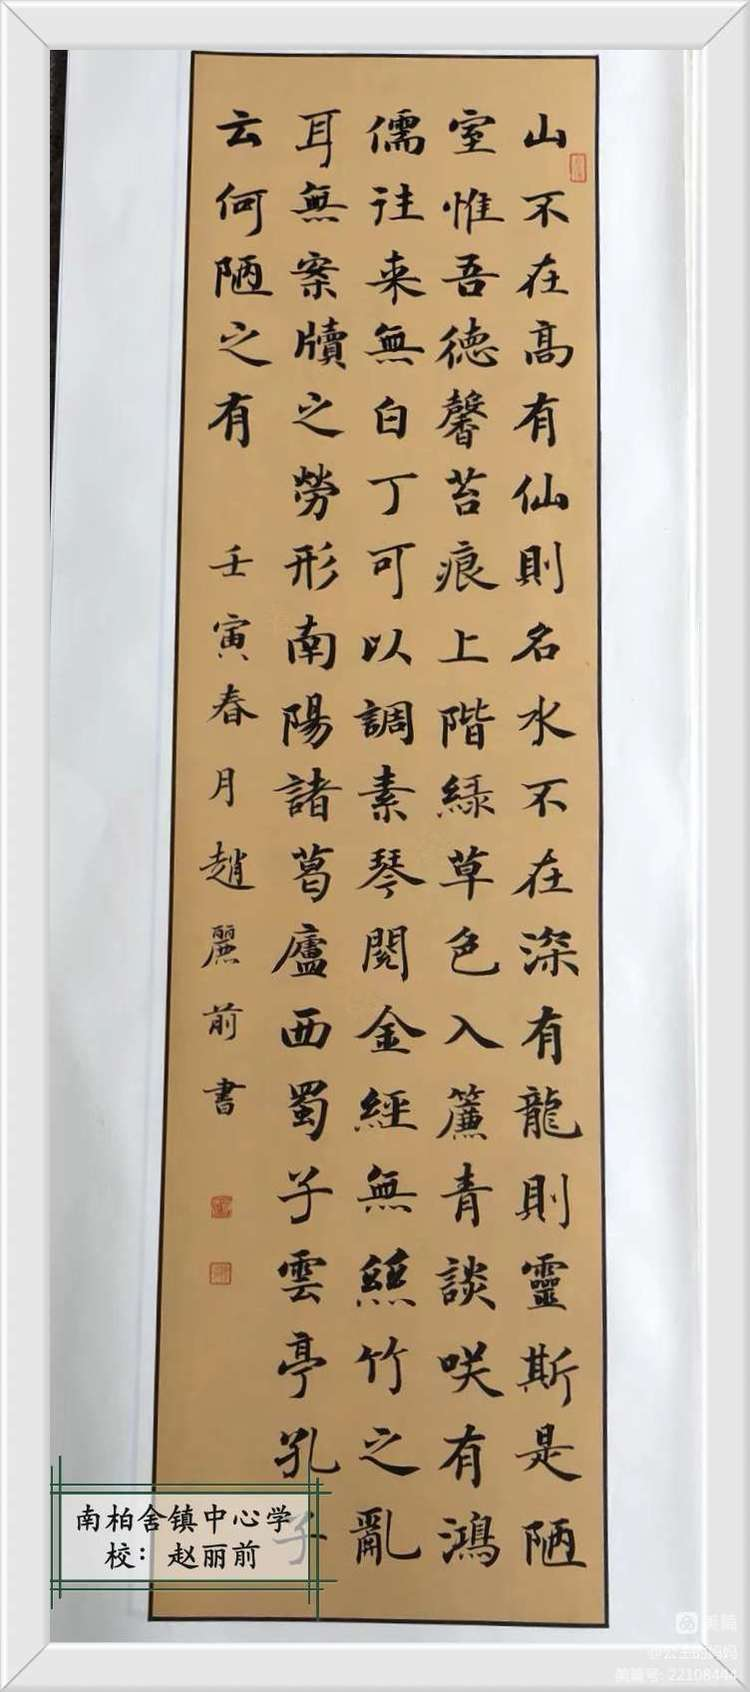 山不在高有仙則名水不在深有龍則靈斯是陋
室惟吾德馨苔痕上階緑草色入簾青談咲有鴻
儒往来無白丁可以調素琴閱金經無絲竹之亂
耳無案牘之勞形南陽諸葛廬西蜀子雲亭孔子
云何陋之有 壬寅春月趙麗前書
南柏舍镇中心学
校：赵丽前
美篇
@公主的妈妈
美篇号: 22108444